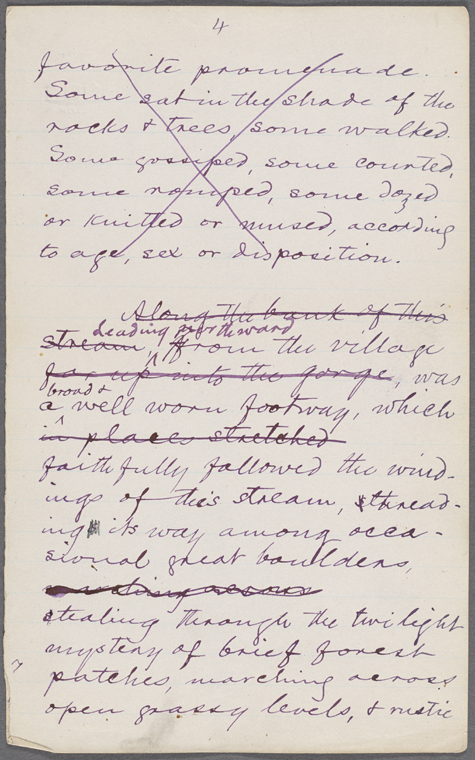 4
favorite promenade.
Some sat in the shade of the
rocks & trees, some walked.
Some gossiped, some courted,
some romped, some dozed
or knitted or mused, according
to age, sex or disposition.
Along the bank of this
Leading northward
stream, from the village
far up into the gorge, was
broad &
a well worn footway, which
in places stretched
faithfully followed the wind-
ings of this stream, thread-
ing its way among occa-
sional great boulders,
marching across
stealing through the twilight
mystery of brief forest
patches, marching across
open grassy levels, & rustic